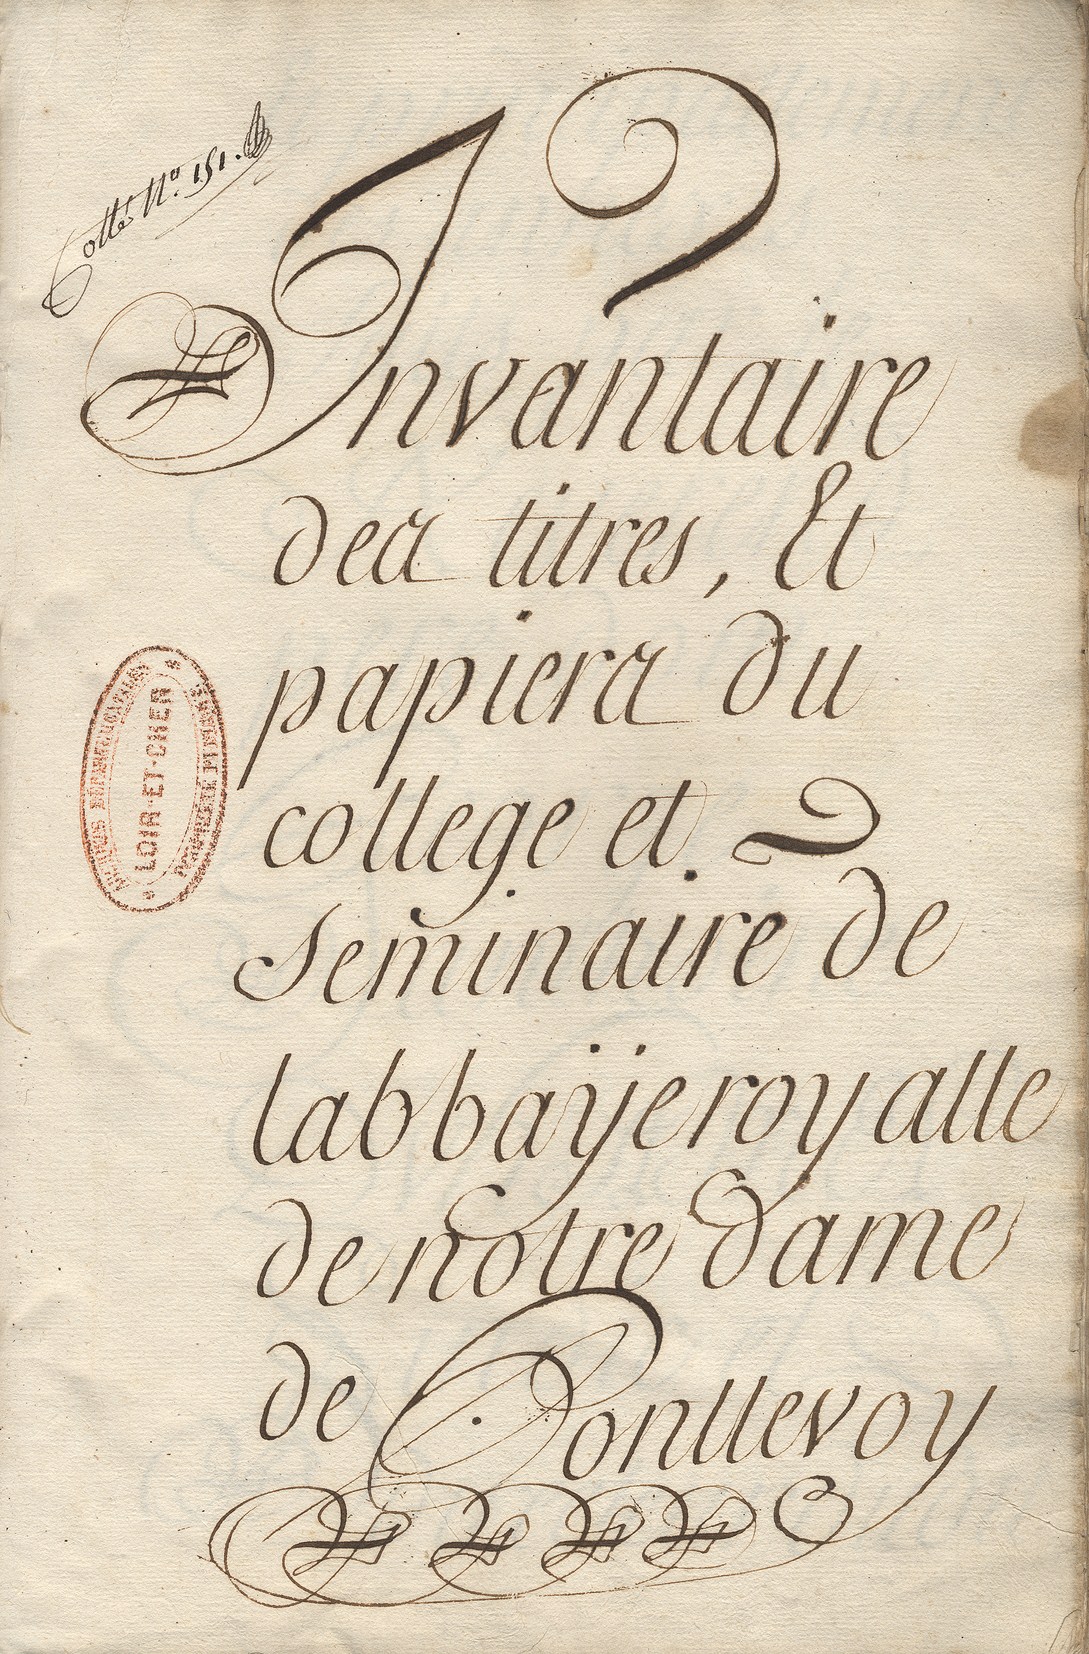 Cotté N.º 151.
Invantaire
des titres, Et
papiers du
college et
seminaire de
labbaÿe royalle
de notre dame
de Pontlevoy
ARCHIVES DEPARTEMENTALES
LOIR-ET-CHER